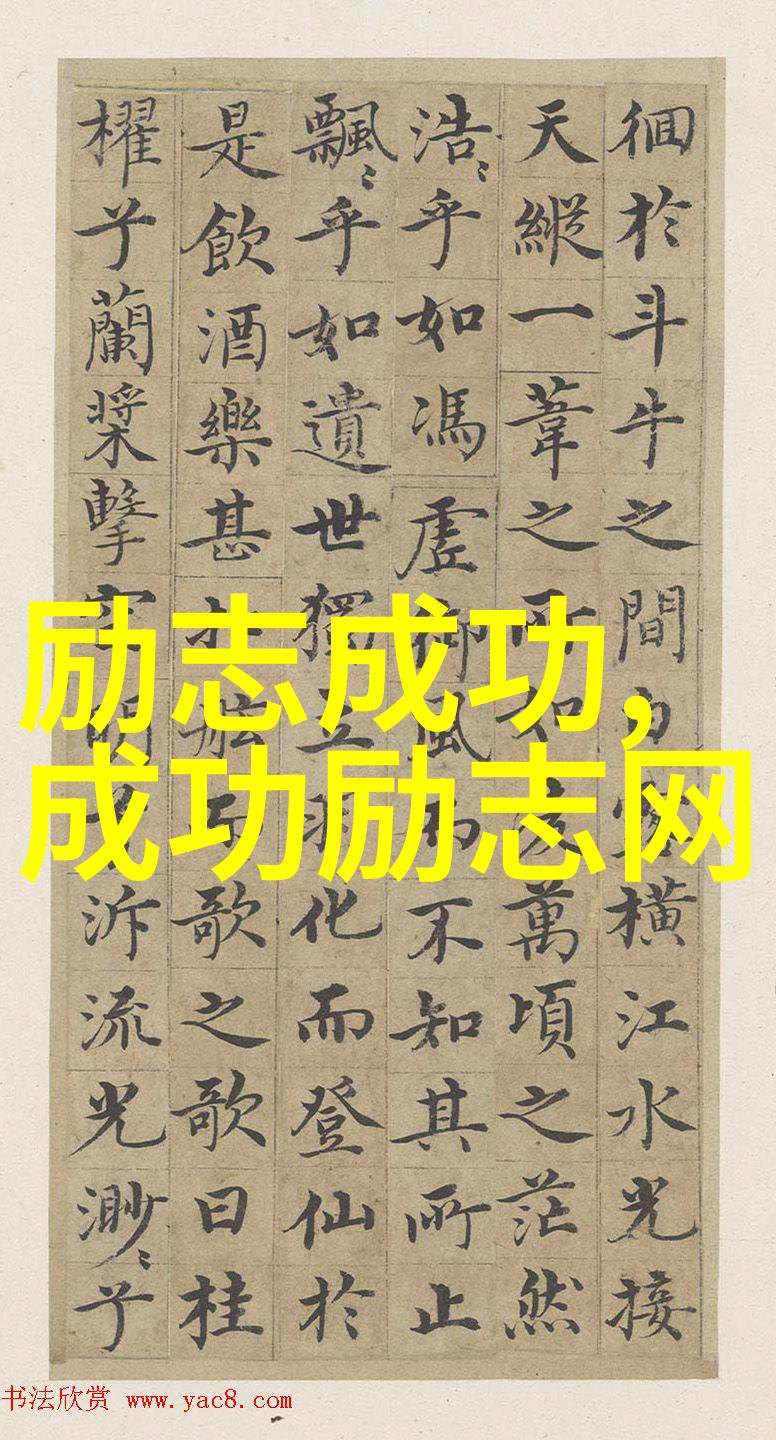 徊於斗牛之間白露橫江水光接
天縱一葦之所如凌萬頃之茫然
浩〻乎如馮虛御風而不知其所止
飄〻乎如遺世獨立羽化而登仙於
是飲酒樂甚扣舷而歌之歌曰桂
櫂兮蘭槳擊空明兮泝流光渺〻兮
励志成功，
成功励志网
书法欣赏 www.yac8.com